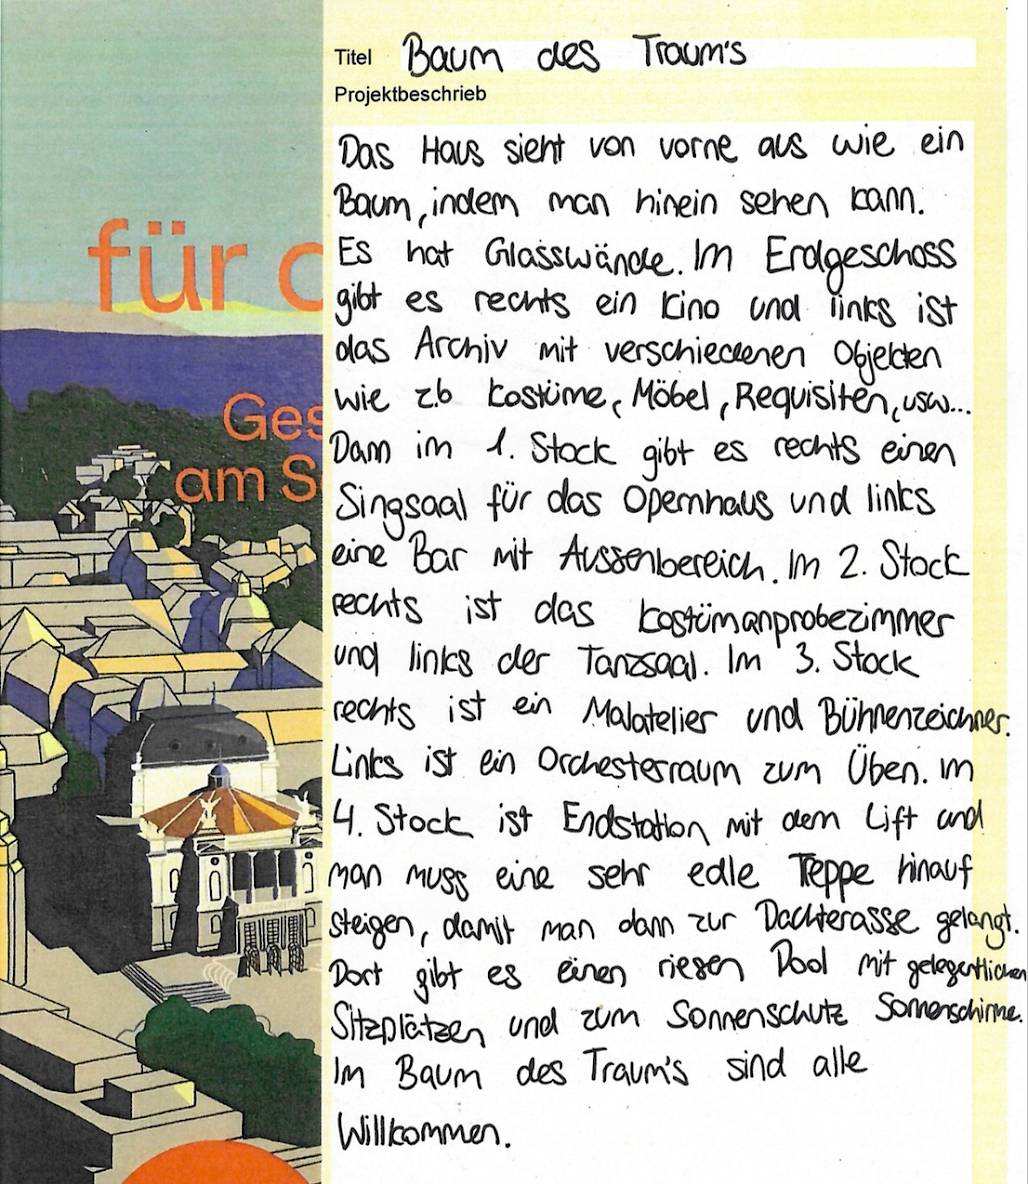 für d
Ges
am S
Titel Baum des Traum's
Projektbeschrieb
Das Haus sieht von vorne aus wie ein
Baum, indem man hinein sehen kann.
Es hat Glasswände. Im Erdgeschoss
gibt es rechts ein Kino und links ist
das Archiv mit verschiedenen Objekten
wie z.b Kostüme, Möbel, Requisiten, usw...
Dann im 1. Stock gibt es rechts einen
Singsaal für das Opernhaus und links
eine Bar mit Aussenbereich. Im 2. Stock
rechts ist das Kostümanprobezimmer
und links der Tanzsaal. Im 3. Stock
rechts ist ein Malatelier und Bühnenzeichner.
Links ist ein Orchesterraum zum Üben. im
4. Stock ist Endstation mit dem Lift und
man muss eine sehr edle Treppe hinauf
steigen, damit man dann zur Dachterasse gelangt.
Dort gibt es einen riesen Pool mit gelegentlichen
Sitzplätzen und zum Sonnenschutz Sonnenschirme.
Im Baum des Traum's sind alle
Willkommen.